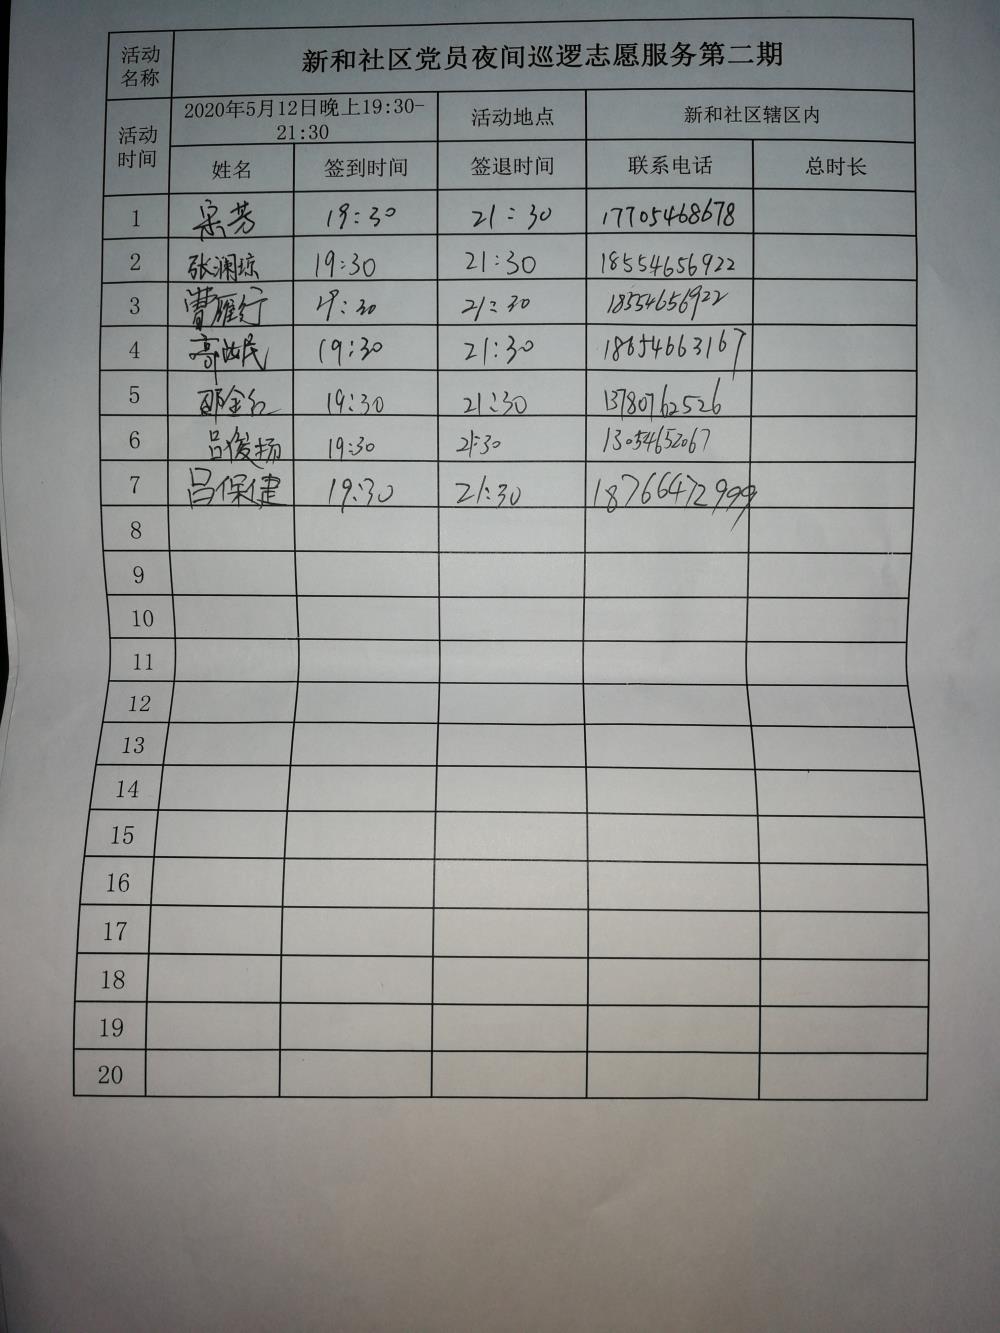 活动名称 新和社区党员夜间巡逻志愿服务第二期
活动时间 2020年5月12日晚上19:30-21:30 活动地点 新和社区辖区内
姓名 签到时间 签退时间 联系电话 总时长
1 宋芳 19:30 21:30 17705468678
2 张澜琼 19:30 21:30 18554656922
3 曹雁行 19:30 21:30 18554656922
4 19:30 21:30 18654663167
5 邵金红 19:30 21:30 13780762526
6 吕俊扬 19:30 21:30 13054652067
7 吕保建 19:30 21:30 18766472999
8
9
10
11
12
13
14
15
16
17
18
19
20